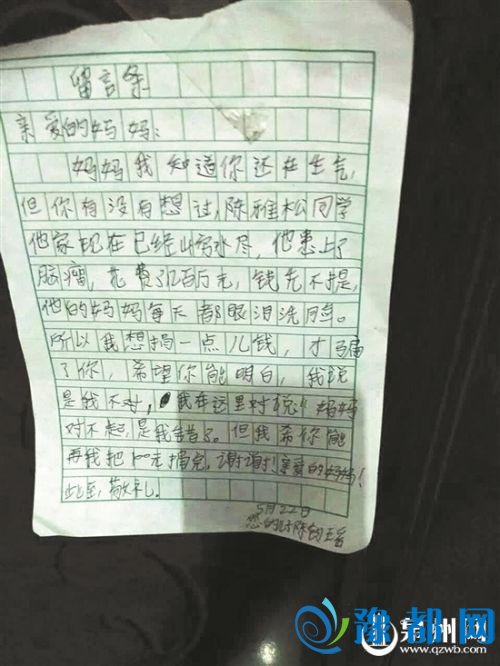 留言条
亲爱的妈妈:
妈妈我知道你还在生气,
但你有没有想过,陈雅松同学
他家现在已经山穷水尽,他患上了
脑瘤,花费了百万元,钱先不提,
他的妈妈每天都眼泪洗脸。
所以我想捐一点儿钱,才骗
了你,希望你能明白,我说
是我不对,我在这里对说"妈妈
对不起,是我错了。但我希你能
再我把100元捐完,谢谢!亲爱的妈妈!
此至,敬礼。
5月22日
您的 陈
豫都网
泉州网
www.qzwb.com